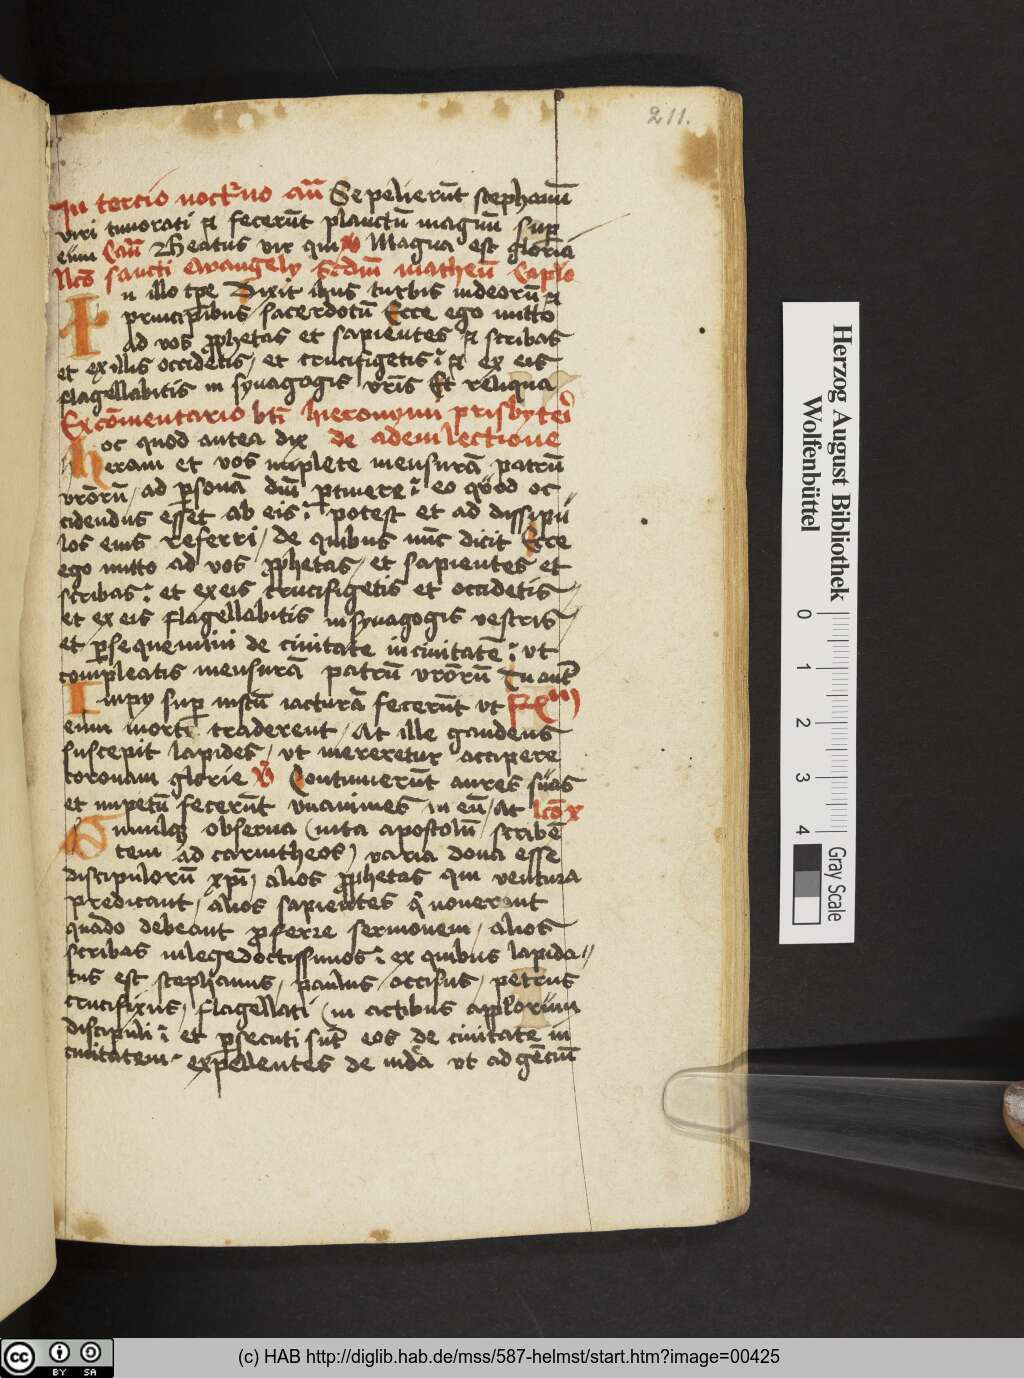 211.
In tercio noct'no añ Sepelierūt stephanū
viri timorati ⁊ fecerūt planctū magnū sup
eum Cañ Beatus vir qui ℣ Magna est gloria
Lc̄o sancti ewangely scdm̄ matheū Caplo
In illo tp̄e Dixit ihūs turbis iudeorū ⁊
principibus sacerdotū Ecce ego mitto
ad vos ꝓphetas et sapientes ⁊ scribas
et ex illis occidetis / et crucifigetis ⁊ ex eis
flagellabitis in synagogis vr̄is Et reliqua
Ex cōmentario bt̄i hieronymi prisbyteri
hoc quod antea dix de adem lectione
eram et vos implete mensurā patrū
vrōrū / ad ꝑsonā dn̄i ꝑtinere eo quod oc
cidendus esset ab eis potest et ad discipu
los eius referri / de quibus nūc dicit Ecce
ego mitto ad vos ꝓphetas / et sapientes et
scribas et ex eis crucifigetis et occidetis
et ex eis flagellabitis in synagogis vestris
et ꝑsequemini de ciuitate in ciuitatē ut
compleatis mensurā patrū vrōrū Tu aut̄
Impy sup iustū iacturā fecerūt ut
eum morti traderent / At ille gaudens
suscepit lapides / ut mereretur accipere
coronam glorie ℣ Continuerūt aures suas
et impetū fecerūt vnanimes in eū / at lc̄o x
Simulqꝫ obserua iuxta apostolū scribē
tem ad corintheos / varia dona esse
discipulorū xp̄i / alios ꝓphetas qui ventura
predicant / alios sapientes q̄ nouerant
quādo debeant ꝓferre sermonem / alios
scribas in lege doctissimos ex quibus lapida
tus est stephanus / paulus occisus / petrus
crucifixus / flagellati in actibus apl̄orum
discipuli et ꝑsecuti sūt eos de ciuitate in
ciuitatem expellentes de iudea ut ad gēciū
Herzog August Bibliothek
Wolfenbüttel
0 1 2 3 4
Gray Scale
cc BY SA
(c) HAB http://diglib.hab.de/mss/587-helmst/start.htm?image=00425